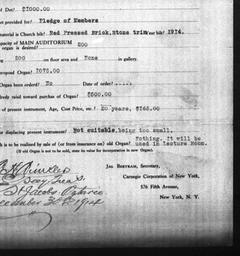 Debt? $1000.00
provided for? Pledge of Members
material is Church built? Red Pressed Brick, stone trim Year built? 1914.
Capacity of MAIN AUDITORIUM 200
organ is desired?
200 on floor area and None in gallery
proposed Organ? 1075.00
Organ been ordered? No Date of order
already raised toward purchase of Organ? $600.00
of present instrument, Age, Cost Price, etc.? 20 years, $165.00
for displacing present instrument? Not suitable, being too small.
Nothing. It will be
is to be realized by sale of (or from insurance on) old Organ? used in Lecture Room.
(If old Organ is not to be sold, state its value for incorporation in new Organ)
JAS. BERTRAM, Secretary,
Carnegie Corporation of New York,
576 Fifth Avenue,
New York, N. Y.
Secy Treas
St Jacobs Ontario
December 30th 1914